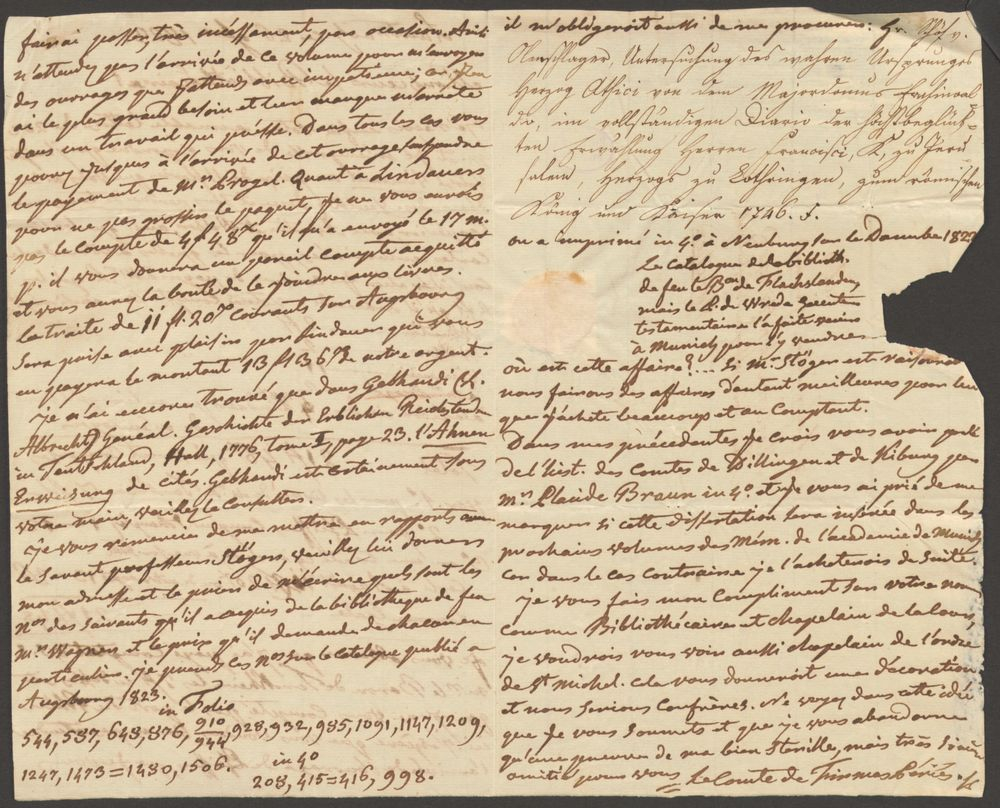 ferai passer, très incéssament, par occasion. Ainsi
n'attendez pas l'arrivée de ce volume pour m'envoyer
des ouvrages que j'attends avec impatience; car j'en
ai le plus grand besoin et leur manque m'arrete
dans un travail qui présse. Dans tous les cas vous
pouvez jusques à l'arrivée de cet ouvrage suspendre
le payement de Mr. Progel. Quant à Lindauer
pour ne pas grossir le paquet je ne vous envois
pas le compte de 4 f 48 qu'il m'a envoyé le 17 m.
p. il vous donnera un pareil compte acquitté
et vous aurez la bonté de le joindre aux livres.
la traite de 11 fl. 20 courants sur Augsbourg
sera prise avec plaisir par Lindauer qui vous
en payera le montant 13 f 36 de notre argent.
je n'ai encore trouvé que dans Gebhardi &.
Albrecht Genéal. Geschichte der Erblichen Reichsstende
in Teutschland, Hall, 1776, tome I, page 23. l'Ahnen
Erweisung de cités. Gebhardi est certainement sous
votre main, veuillez le consulter.
je vous remercie de me mettre en rapports avec
le savant professeur Stöger, veuillez lui donner
mon adresse et le prier de m'écrire quels sont les
Nos des suivants qu'il a acquis de la bibliotheque de feu
Mr. Wagner et le prix qu'il demande de chacun en
particulier. je prends ces Nos sur le Catalogue publié a
Augsbourg 1823. in Folio
544, 587, 648, 876, 910/944, 928, 932, 985, 1091, 1147, 1209,
1247, 1473=1480, 1506. in 4o
208, 415=416, 998.
il m'obligeroit aussi de me procurer: Hr. v.
Olenschlager, Untersuchung des wahren Ursprunges
Herzog von dem Majordomus
do, im vollständigen Diario der höchstbeglück-
ten Erwählung Herren Francisci, K. zu Jeru
salem, Herzogs zu Lothringen, zum römischen
König und Kaiser 1746. f.
on a imprimé in 4o. à Neuburg sur le Danube 182
Le Catalogue de la biblioth.
de feu le Bon de Flachslanden
mais le P. de Wrede
testamentaire l'a fait venir
à Munich pour l'y vendre
où est cette affaire?... Si Mr. Stöger est raisonna
nous ferons des affaires d'autant meilleures pour lui
que j'achete beaucoup et au Comptant.
Dans mes précédentes je crois vous avoir parlé
de l'hist. des comtes de Dillingen et de Kiburg par
Mr. Placide Braun in 4o. et je vous ai prié de me
marquer si cette dissertation sera insérée dans les
prochains volumes des Mém. de l'académie de Munich
car dans le cas contraire je l'acheterois de suite.
je vous fais mon Compliment sur votre nom
comme Bibliothécaire et chapelain de la cour,
je voudrois vous voir aussi chapelain de l'ordre
de St Michel. cela vous donneroit une décoration
et nous serions Confrères. Ne voyez dans cette idée
que je vous soumets et que je vous abandonne
qu'une preuve de ma bien sterille, mais très sincère
amitié pour vous. Le Comte de